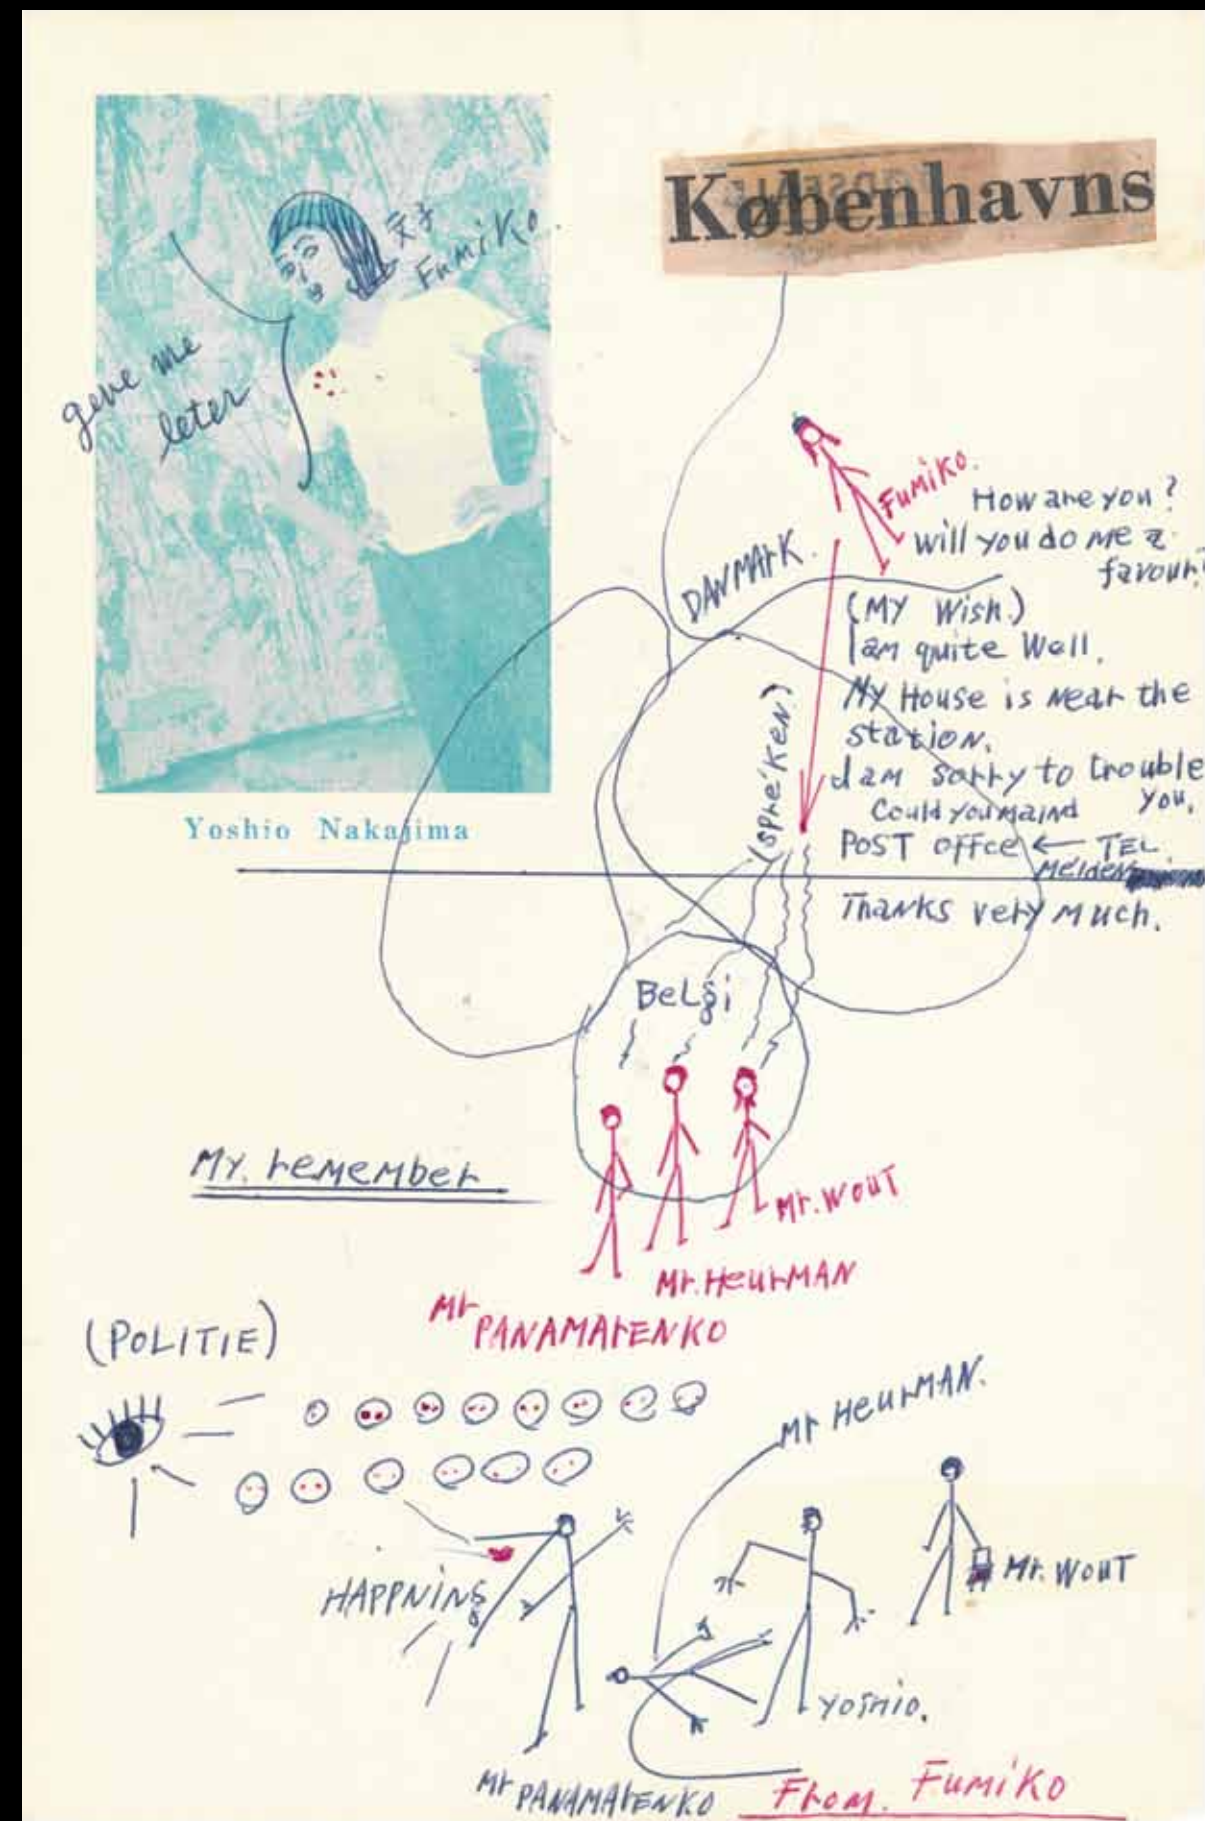 Københavns
文子
Fumiko.
geve me
leter
Yoshio Nakajima
Fumiko.
How are you?
will you do me a
favour?
DANMARK.
(MY Wish.)
I am quite Well.
My House is Near the
station.
I am sorry to trouble
you.
Could you maind
POST offce ← TEL.
Melden
Thanks very Much.
(SPRE'KEN)
BeLgi
My. remember
Mr. WOUT
Mr. HeurMAN
Mr
PANAMARENKO
(POLITIE)
Mr HeurMAN.
HAPPNiNg
Mr. WOUT
Yoshio.
Mr PANAMARENKO
From. FUMiKO